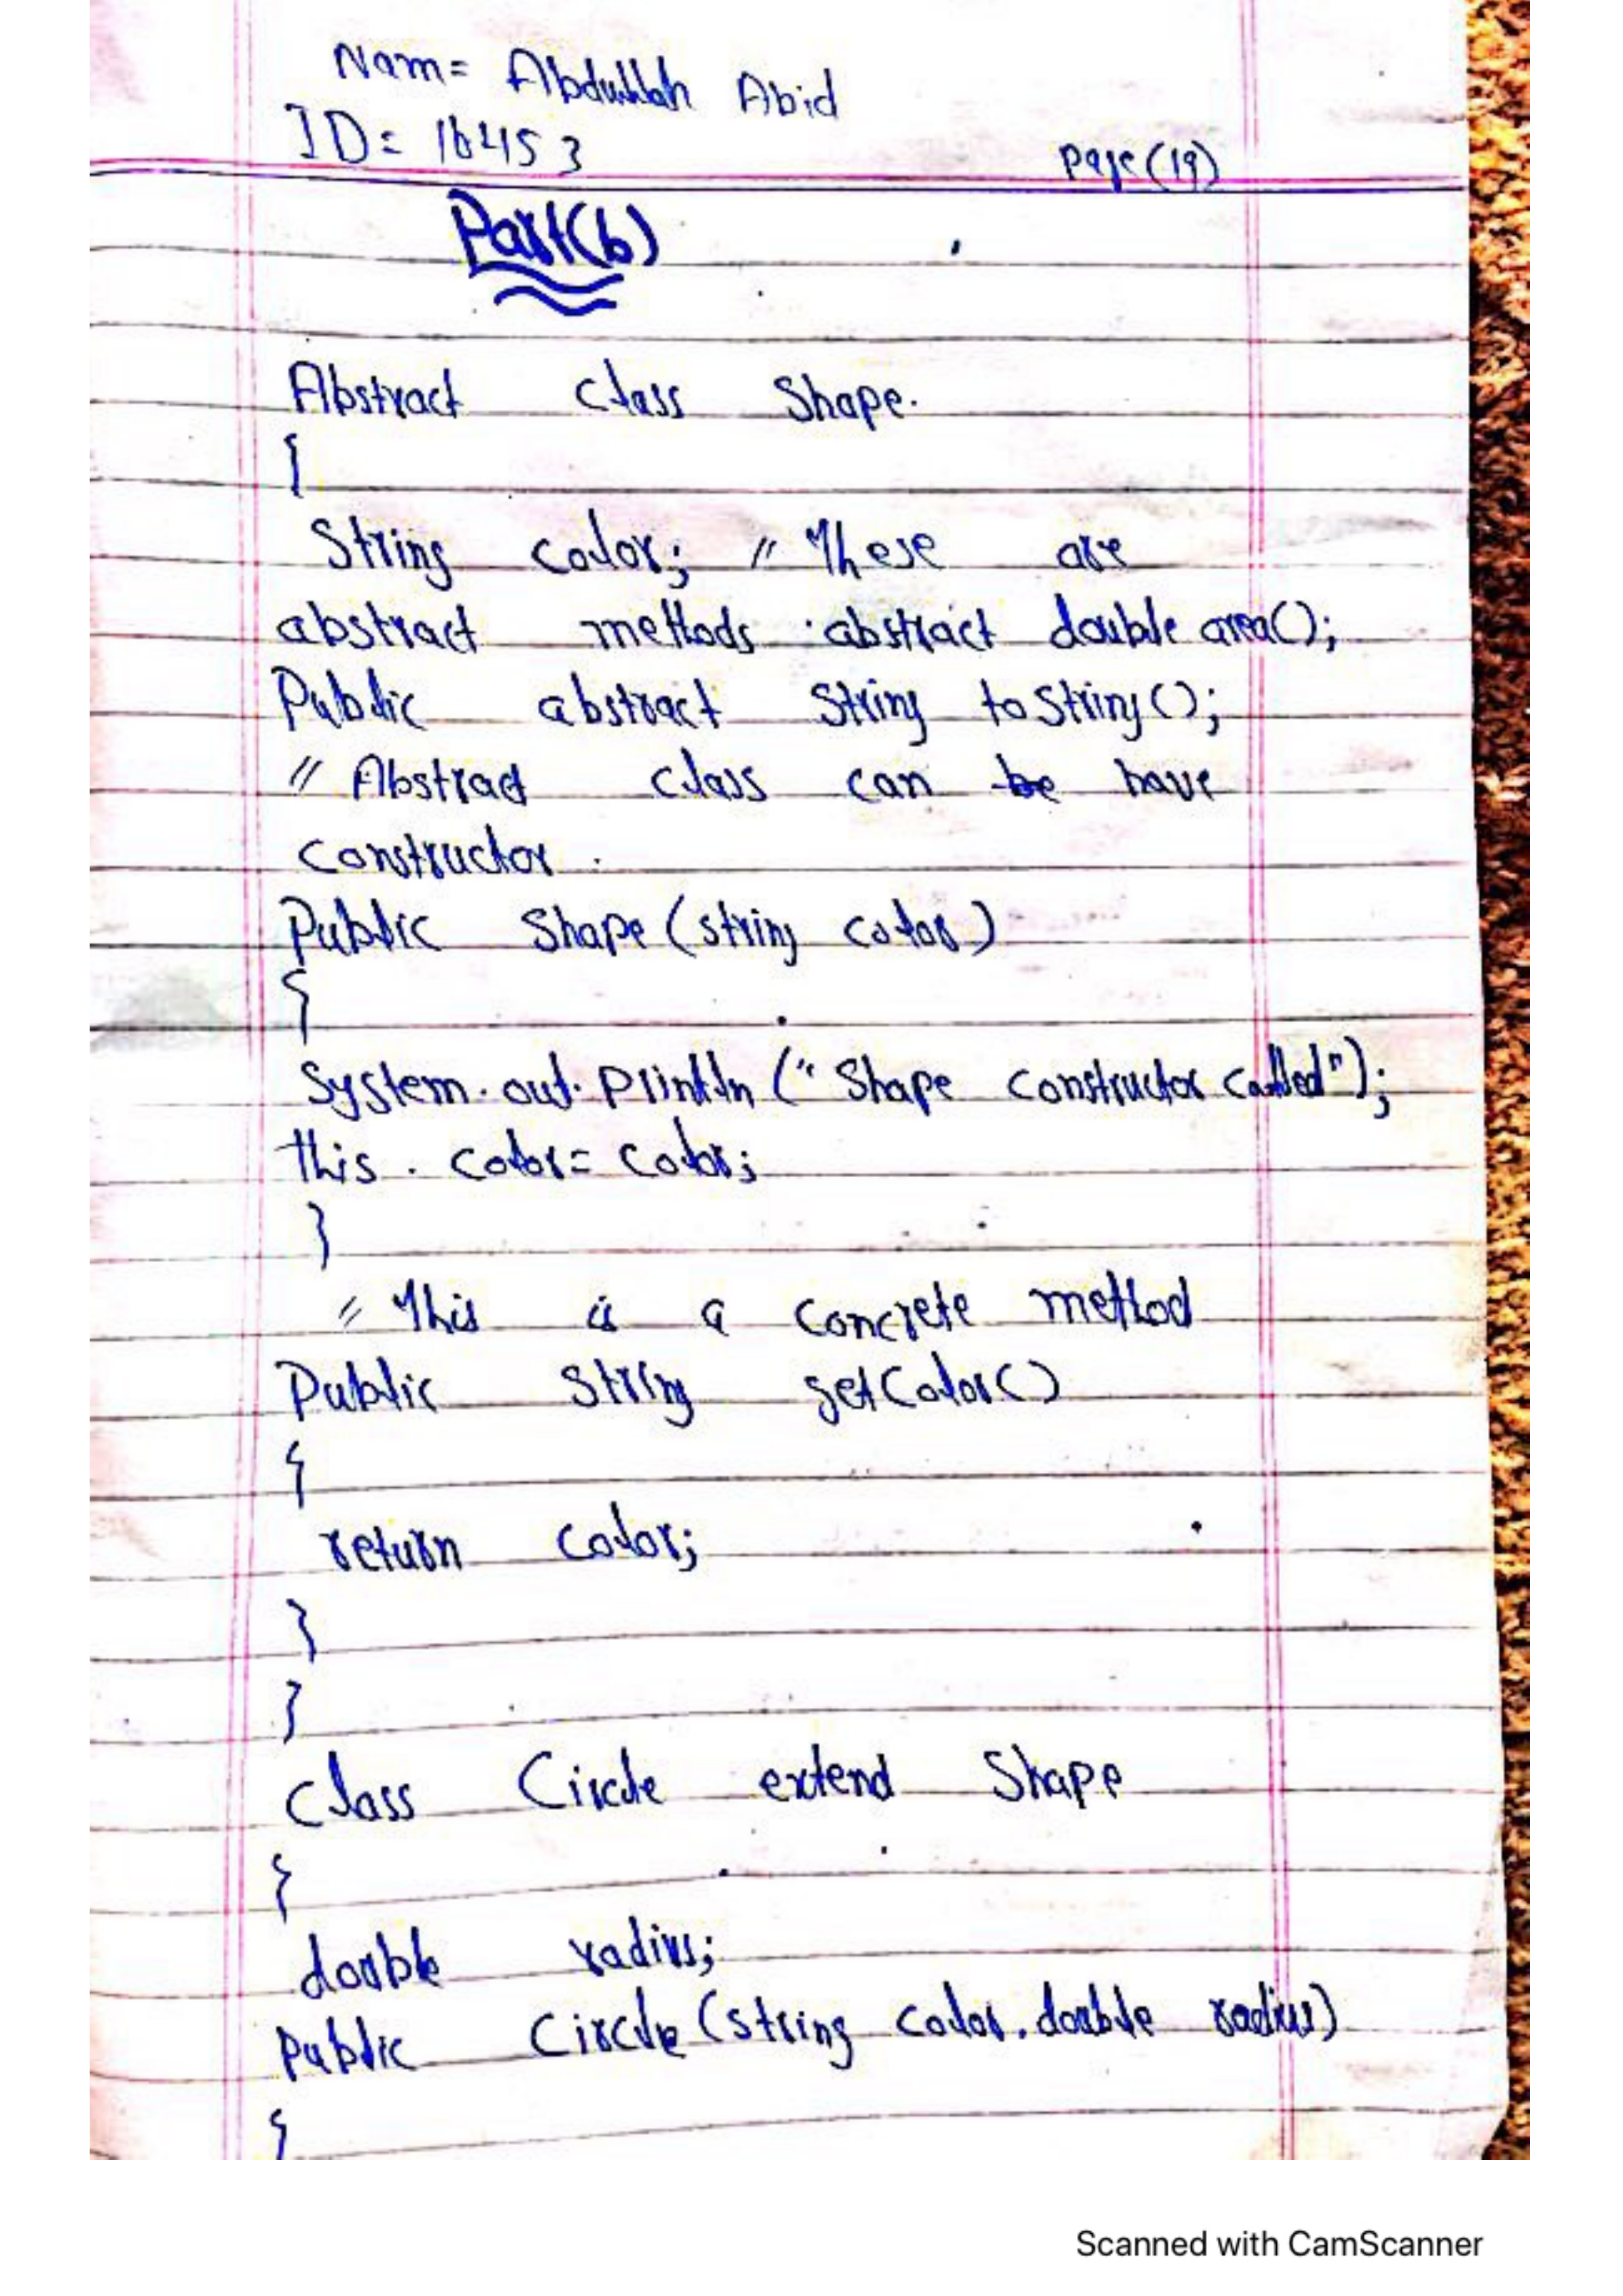 Nam= Abdullah Abid
ID= 16453
page(19)
Part(b)
Abstract class Shape.
{
String color; // These are
abstract methods abstract double area();
Public abstract String toString();
// Abstract class can be have
constructor.
Public Shape (string color)
{
System.out.println ("Shape constructor called");
this . color= color;
}
// This is a concrete method
Public String getColor()
{
return color;
}
}
Class Circle extend Shape
{
double radius;
Public Circle (string color, double radius)
{
Scanned with CamScanner